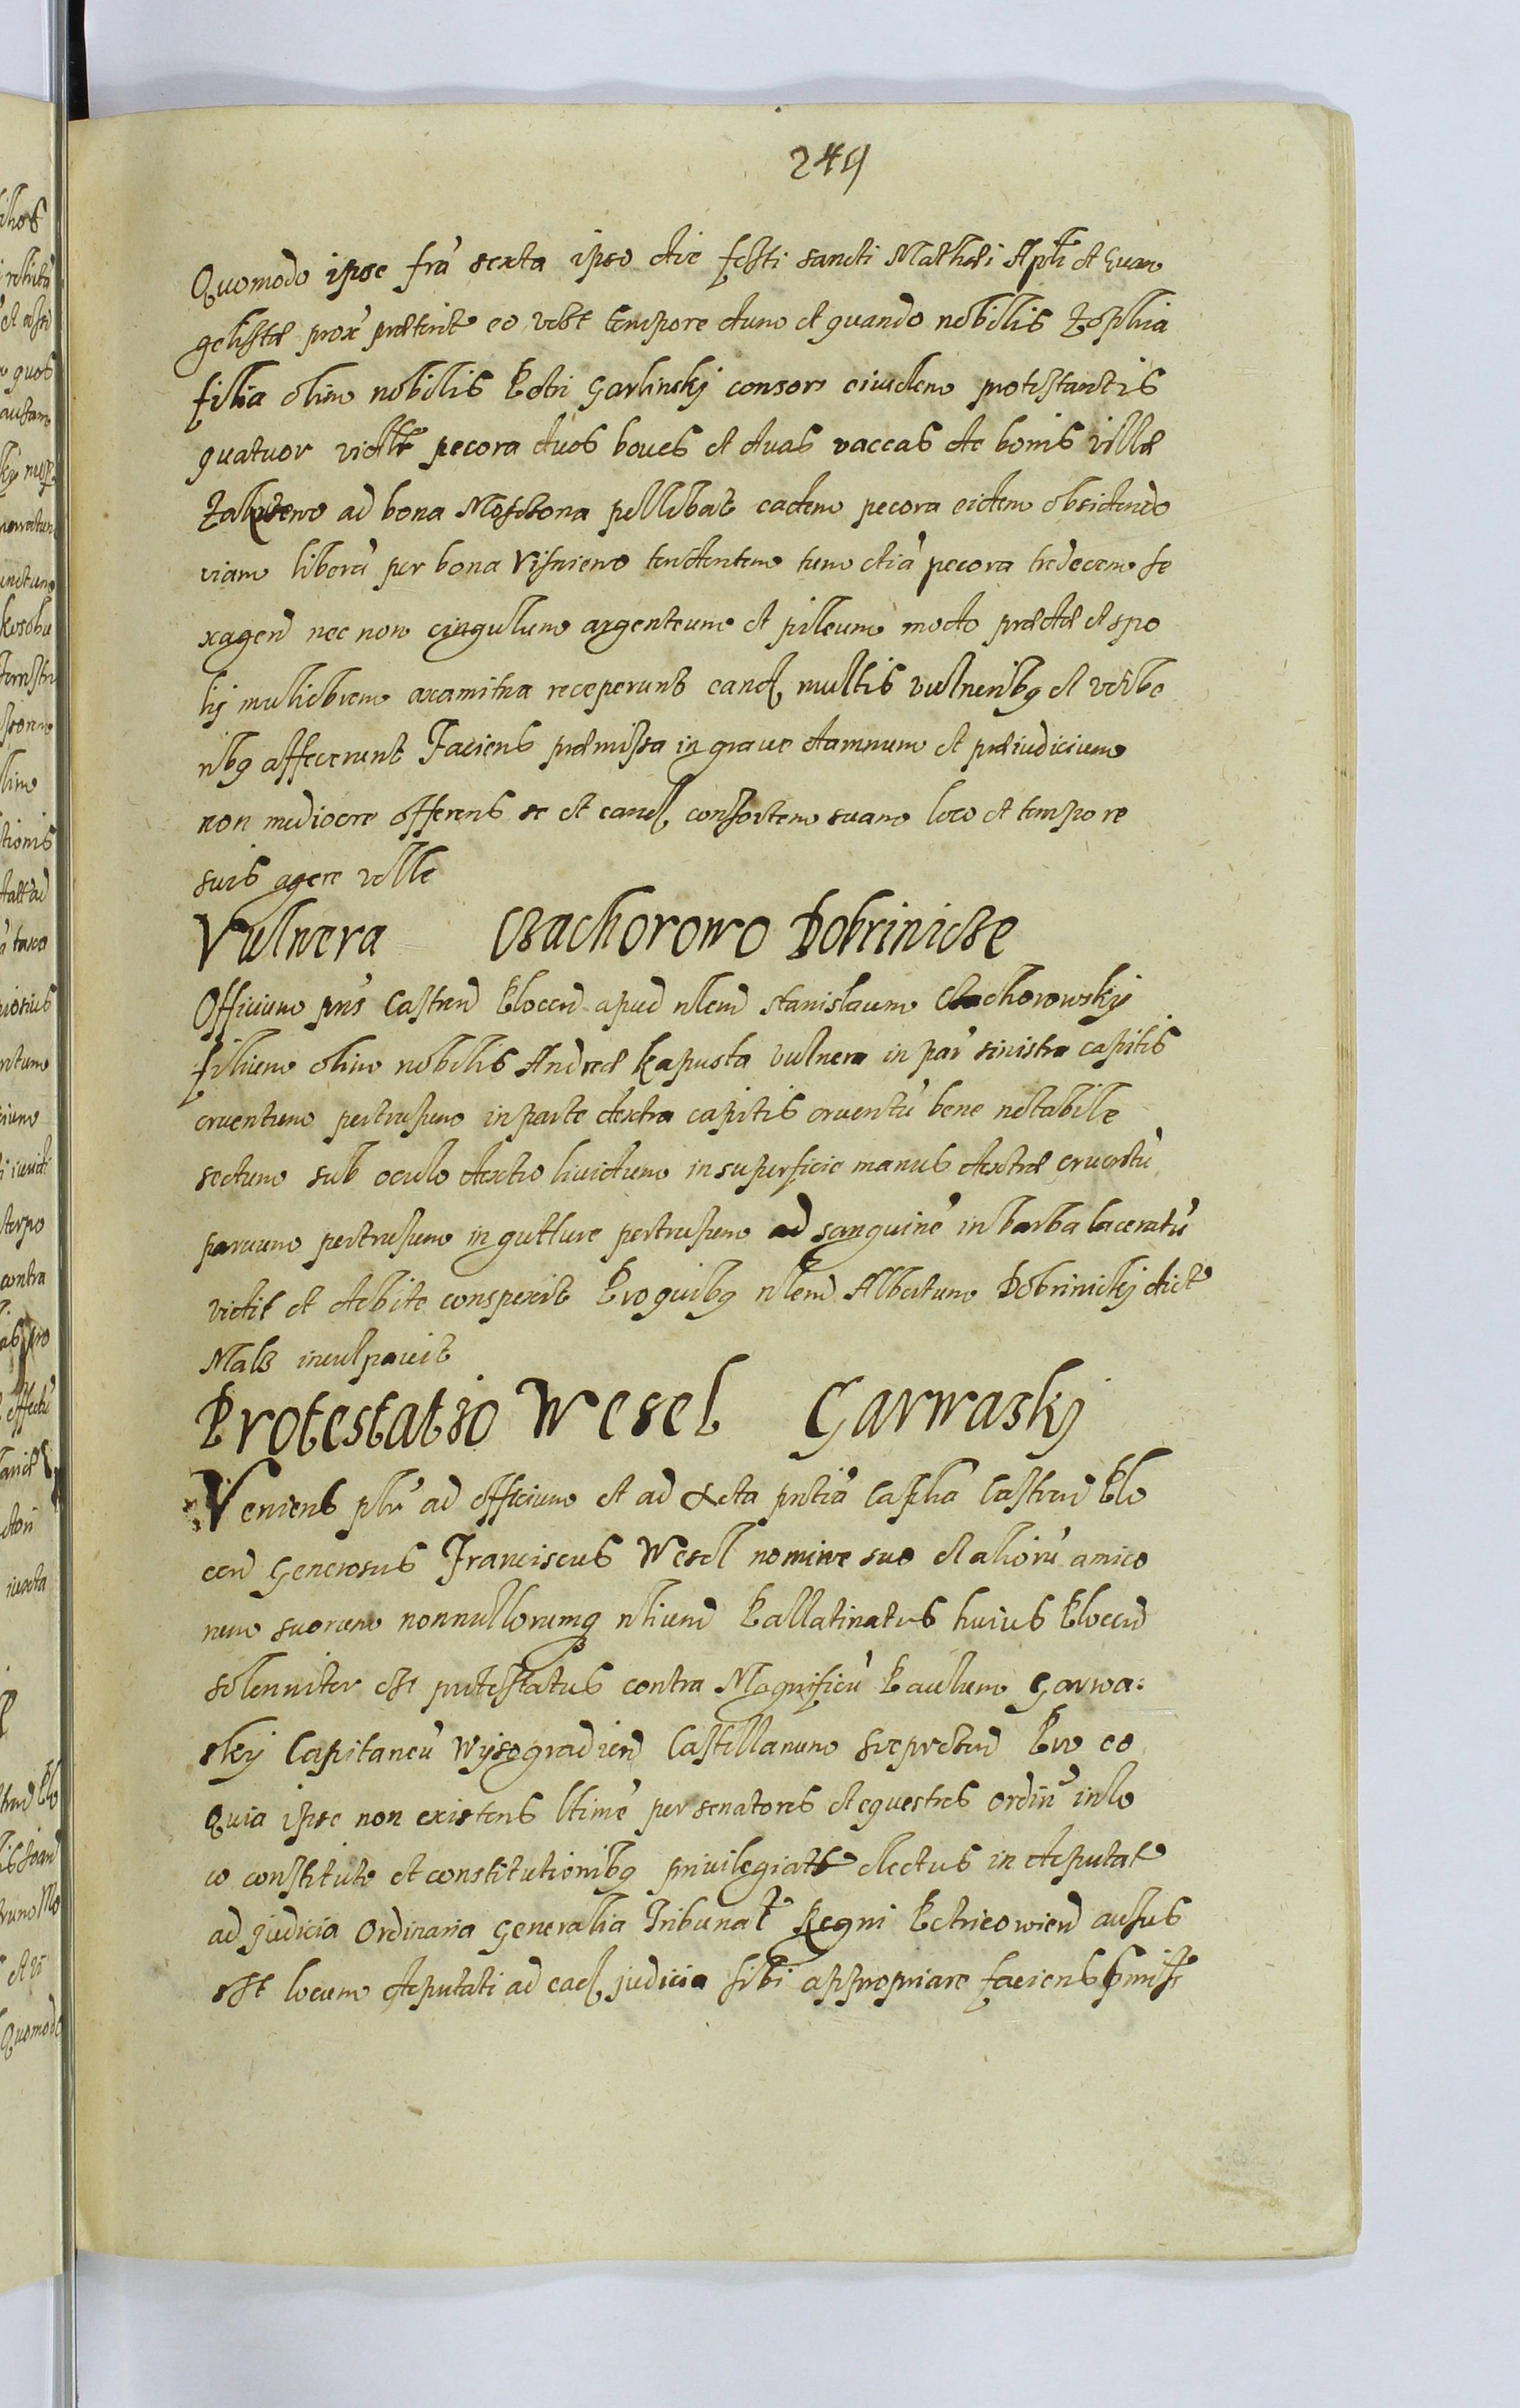 249
Quomodo ipse fra sexta ipso die festi sancti Mathei Apli et Euan
gelistæ prox præterit eo vide tempore dum et quando nobilis Zophia
filia olim nobilis Petri Garlinskj consors eiusdem protestantis
quatuor vidlt pecora duos boues et duas vaccas de bonis villæ
ad bona pellibat eadem pecora eidem obsidendo
viam liberã per bona Visniewo tendentem tum etiã pecora tredecem se
xagend nec non cingulum argenteum et pileum modo prædæ et spo
lij muliebrem axamitna receperunt eand multis vulneribq et verbe
ribq affecerunt Faciens præmissa in graue damnum et præiudicium
non mediocre offerens se et eand consortem suam loco et tempore
suis agere velle
Vulnera Czachorowo Dobrinicze
Officium pns Castren Plocen apud nlem Stanislaum Czachorowskij
filium olim nobilis Andreæ Kapusta vulnera in par sinistra capitis
cruentum pertusum in parte dextra capitis cruentũ bene notabile
sectum sub oculo dextro liuidum in superficie manus dextræ cruentũ
paruum pertusum in gutture pertusum ad sanguinẽ in barba laceratũ
vidit et debite conspexit Pro quibq nlem Albertum Dobrinickj dict
Malz inculpauit
Protestatio Wesel Garwaskj
Veniens plr ad officium et ad Acta pntiã Caplia Castren Plo
cen Generosus Franciscus Wesel nomine suo et aliorũ amico
rum suorum nonnullorumq nlium Pallatinatus huius Plocen
solenniter est protestatus contra Magnificũ Paulum Garwa:
skij Capitaneũ Wysogradien Castellanum Sieprcen Pro eo
Quia ipse non existens ltime per senatores et equestres ordin in lo
co constituto et constitutionibq priuilegiat electus in deputat
ad judicia Ordinaria Generalia Tribunal Regni Petricowien ausus
est locum deputati ad ead judicia sibi appropriare faciens pmiss